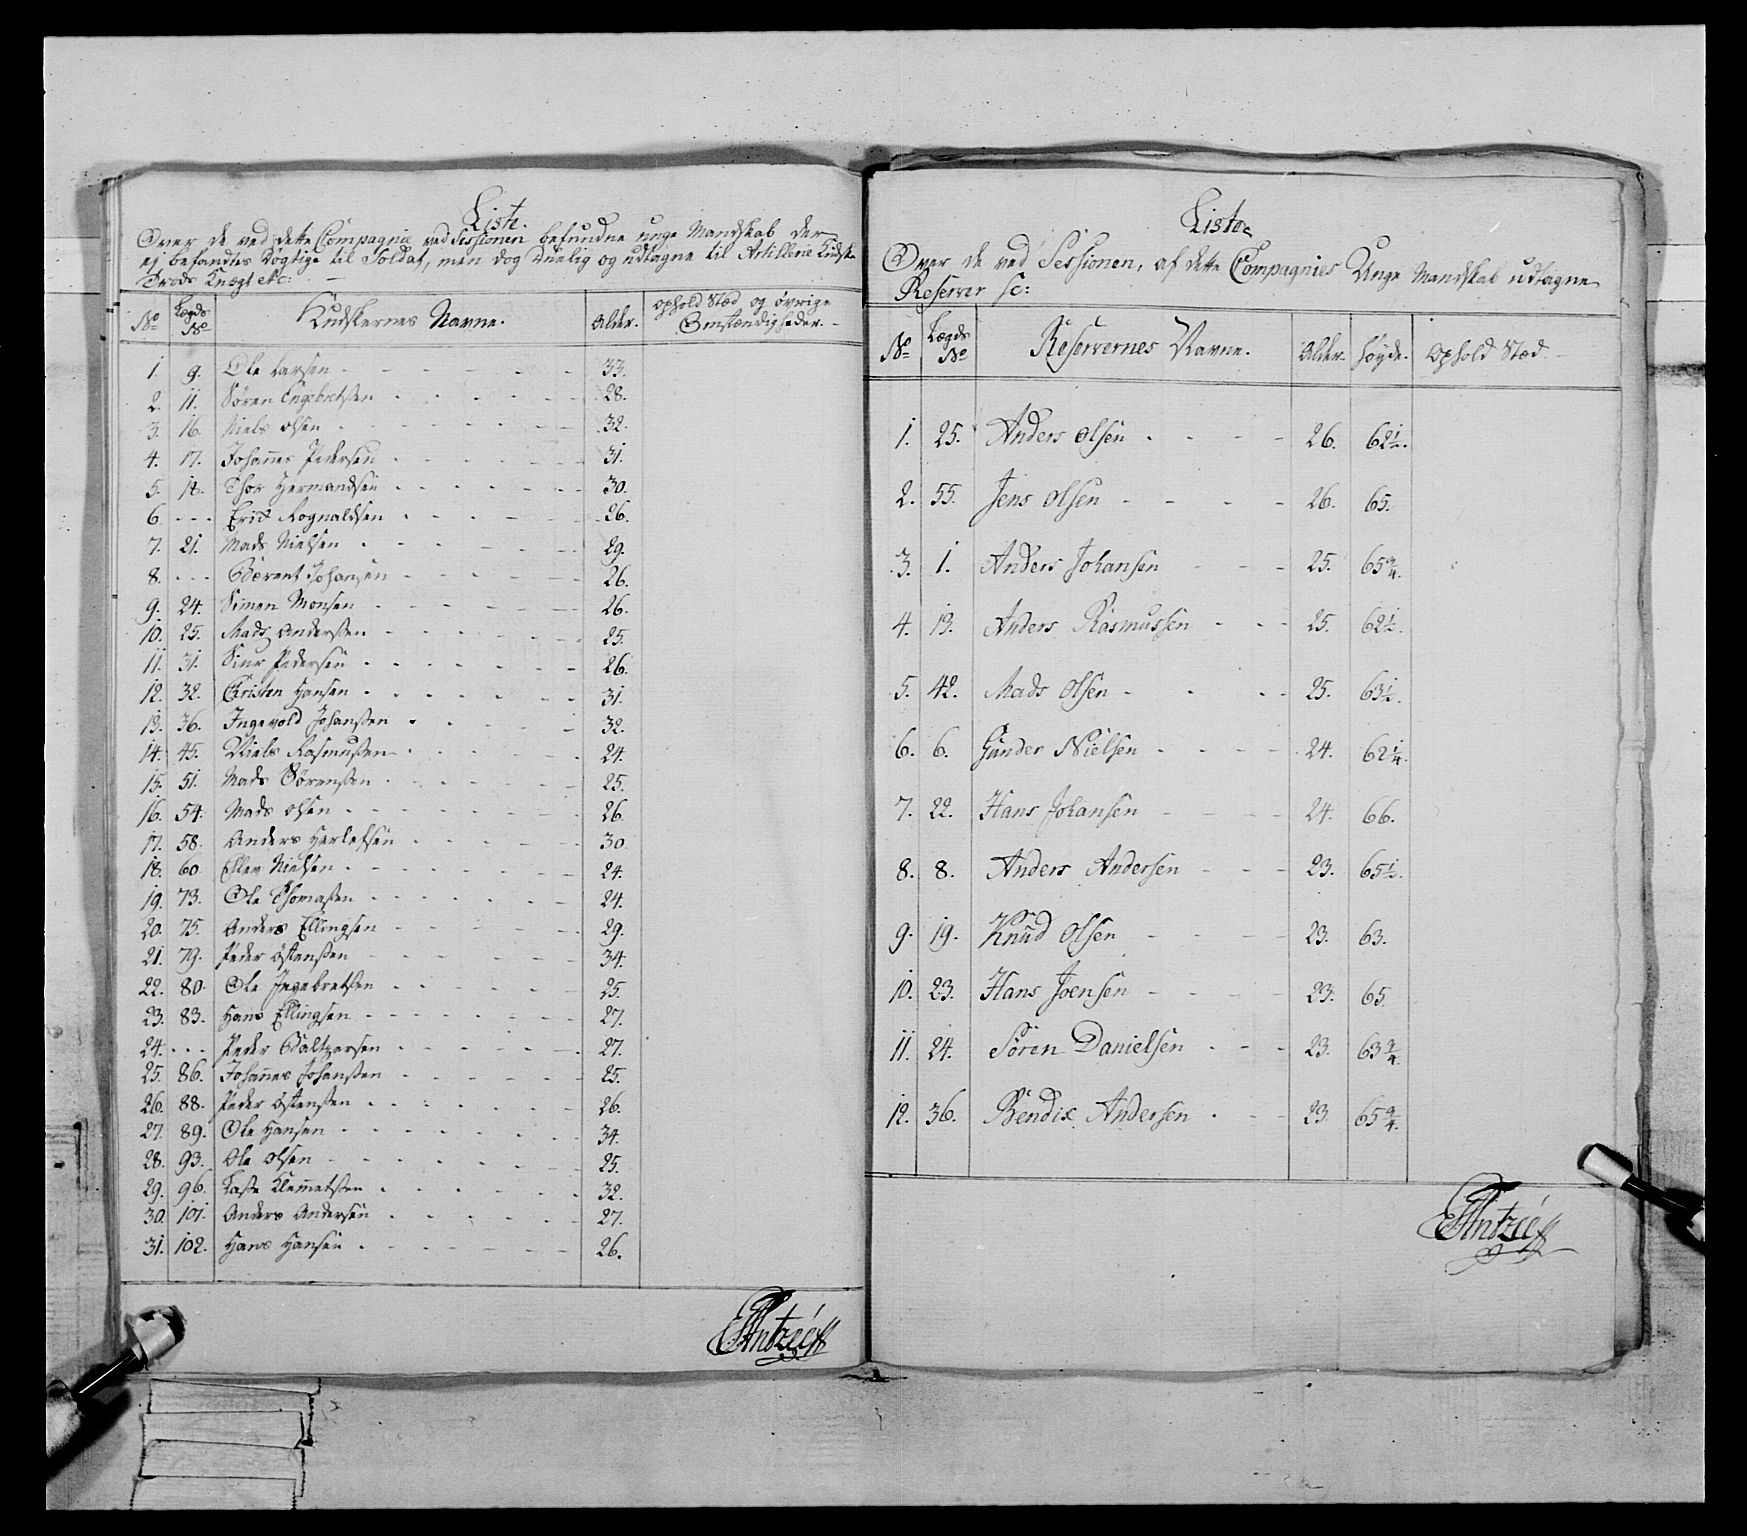 Liste.
Over de ved dette Compagnie ved Sessionen befundne unge Mandskab der
ej befandtes dögtige til Soldat, men dog duelig og udtagne til Artillerie Kudske
Trods Knegt etc:
No Lægds No Kudskernes Navne. Alder. Ophold Stæd og øvrige Omstændigheder.
1. 9. Ole Larsen 33.
2. 11. Sören Engebretsen 28.
3. 16. Niels Olsen 32.
4. 17. Johannes Pedersen 31.
5. 18. Thor Hermandsen 30.
6. - - - Erick Rognaldsen 26.
7. 21. Mads Nielsen 29.
8. - - - Bærent Johansen 26.
9. 24. Simen Monsen 26.
10. 25. Mads Andersen 25.
11. 31. Siur Pedersen 26.
12. 32. Christen Hansen 31.
13. 36. Ingevold Johansen 32.
14. 45. Niels Rasmusen 24.
15. 51. Mads Sörensen 25.
16. 54. Mads Olsen 26.
17. 58. Anders Herlefsen 30.
18. 60. Ellev Nielsen 24.
19. 73. Ole Thomasen 24.
20. 75. Anders Ellingsen 29.
21. 79. Peder Östensen 34.
22. 80. Ole Ingebretsen 25.
23. 83. Hans Ellingsen 27.
24. - - - Peder Baltzersen 27.
25. 86. Johannes Johansen 25.
26. 88. Peder Östensen 26.
27. 89. Ole Hansen 34.
28. 93. Ole Olsen 25.
29. 96. Lasse Klemetsen 32.
30. 101. Anders Andersen 27.
31. 102. Hans Hansen 26.
Liste
Over de ved Sessionen, af dette Compagnies Unge Mandskab udtagne
Reserver sc:
No Lægds No Reservernes Navne. Alder. Høyde. Ophold Stæd.
1. 25. Anders Olsen 26. 62 1/2.
2. 55. Jens Olsen 26. 65.
3. 1. Anders Johansen 25. 65 3/4.
4. 13. Anders Rasmussen 25. 62 1/2.
5. 42. Mads Olsen 25. 63 1/2.
6. 6. Gunder Nielsen 24. 62 1/4.
7. 22. Hans Johansen 24. 66.
8. 8. Anders Andersen 23. 65 1/2.
9. 19. Knud Olsen 23. 63.
10. 23. Hans Joensen 23. 65.
11. 24. Sören Danielsen 23. 63 3/4
12. 36. Bendix Andersen 23. 65 3/4.